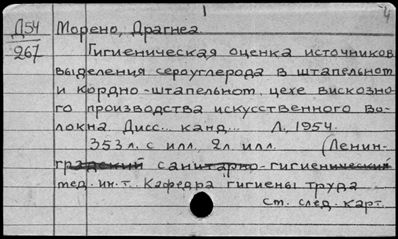 1 4
Д54 Морено, Драгнеа
267 Гигиеническая оценка источников
выделения сероуглерода в штапельном
и кордно-штапельном цехе вискозно-
го производства искусственного во-
локна Дисс... канд... Л., 1954.
353 л. с илл., 2 л илл. (Ленин-
градский санитарно-гигиенический
мед. ин-т. Кафедра гигиены труда
См. след. карт.